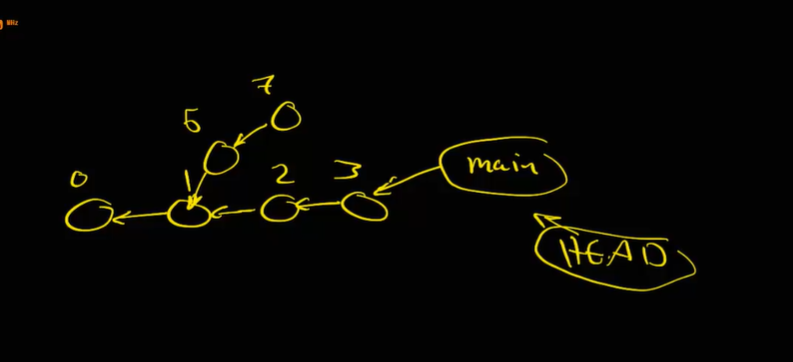 MHz
7
0
1
2
3
main
HEAD